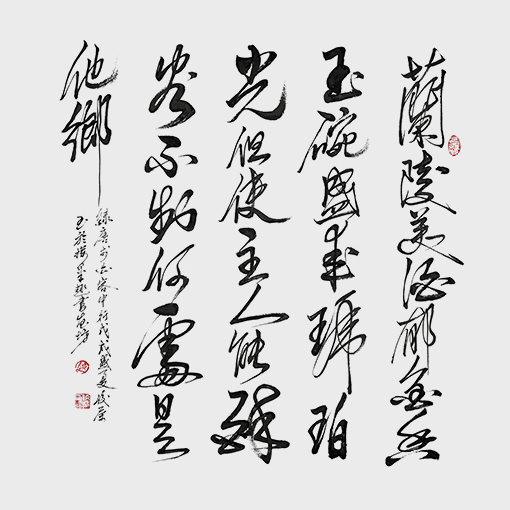 蘭陵美酒郁金香
玉碗盛來琥珀
光但使主人能醉
客不知何處是
他鄉
錄唐李白客中行戊戌盛夏